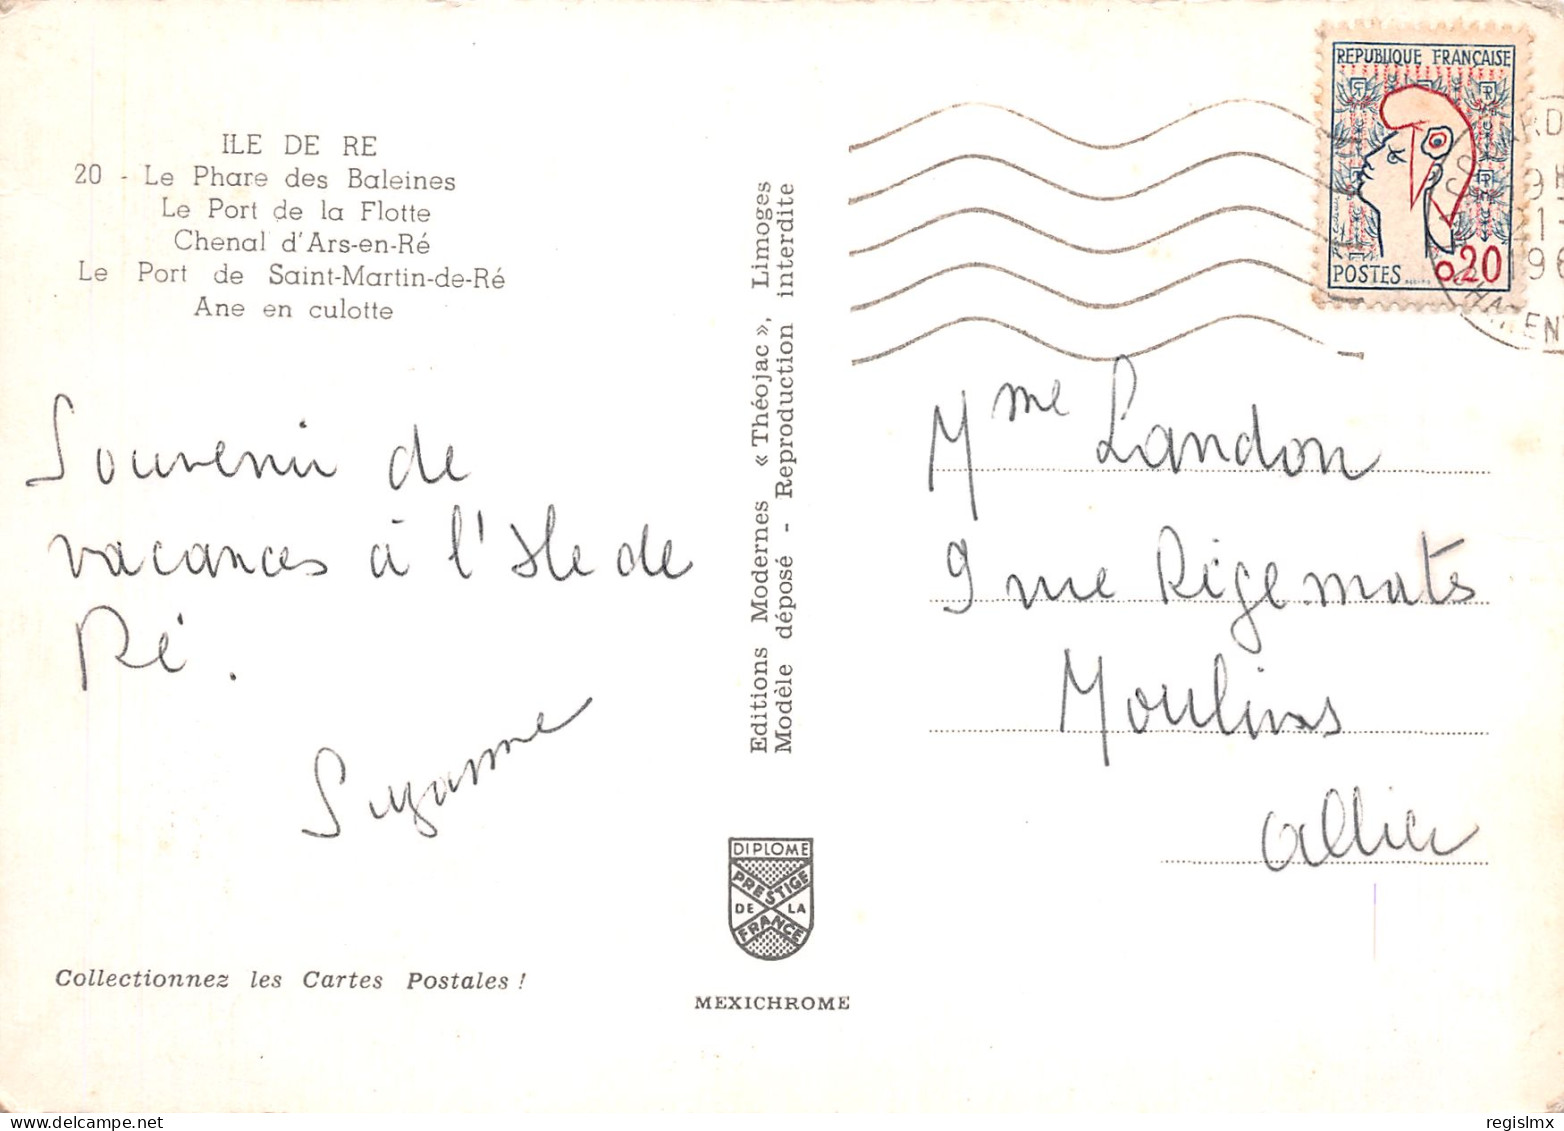 ILE DE RE
20 - Le Phare des Baleines
Le Port de la Flotte
Chenal d'Ars-en-Ré
Le Port de Saint-Martin-de-Ré
Ane en culotte
Souvenir de
vacances à l'Ile de
Ré.
Suzanne
Collectionnez les Cartes Postales !
Editions Modernes « Théojac », Limoges
Modèle déposé - Reproduction interdite
DIPLOME
PRESTIGE
DE LA
FRANCE
MEXICHROME
REPUBLIQUE FRANÇAISE
POSTES 0,20
9H
21-
196
Mme Landon
9 rue Régemats
Moulins
Allier
regislmx